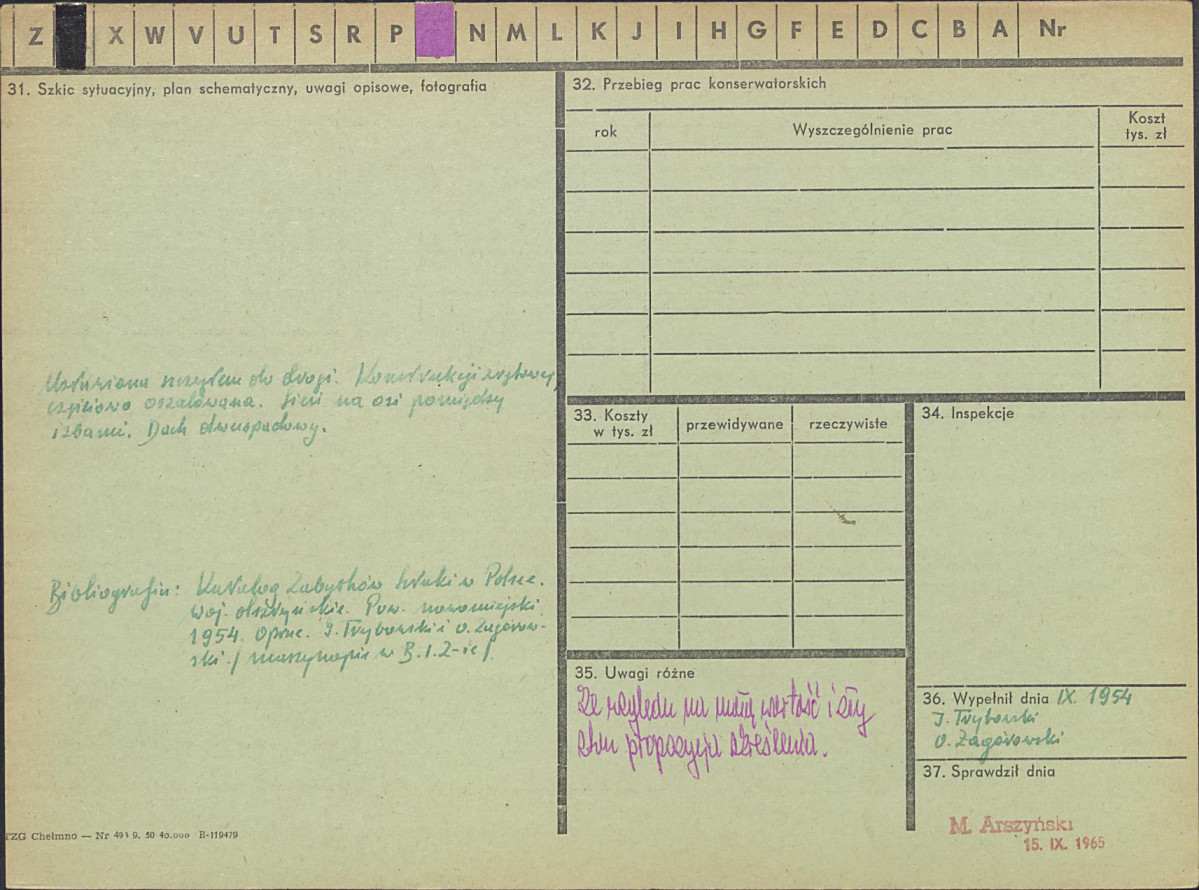 Z X W V U T S R P N M L K J I H G F E D C B A Nr
31. Szkic sytuacyjny, plan schematyczny, uwagi opisowe, fotografia
Usytuowana szczytem do drogi. Konstrukcji zrębowej,
częściowo oszalowana. Sień na osi pomiędzy
izbami. Dach dwuspadowy.
Bibliografia: Katalog Zabytków Sztuki w Polsce.
Woj. olsztyńskie. Pow. nowomiejski
1954. Oprac. J. Fryborski i O. Zagórow-
ski / maszynopis w
TZG Chełmno — Nr 493 9. 50 40.000 B-119479
32. Przebieg prac konserwatorskich
rok
Wyszczególnienie prac
Koszt
tys. zł
33. Koszty
w tys. zł
przewidywane
rzeczywiste
34. Inspekcje
35. Uwagi różne
Ze względu na małą wartość i zły
stan propozycja skreślenia.
36. Wypełnił dnia IX. 1954
J. Fryborski
O. Zagórowski
37. Sprawdził dnia
M. Arszyński
15. IX. 1965